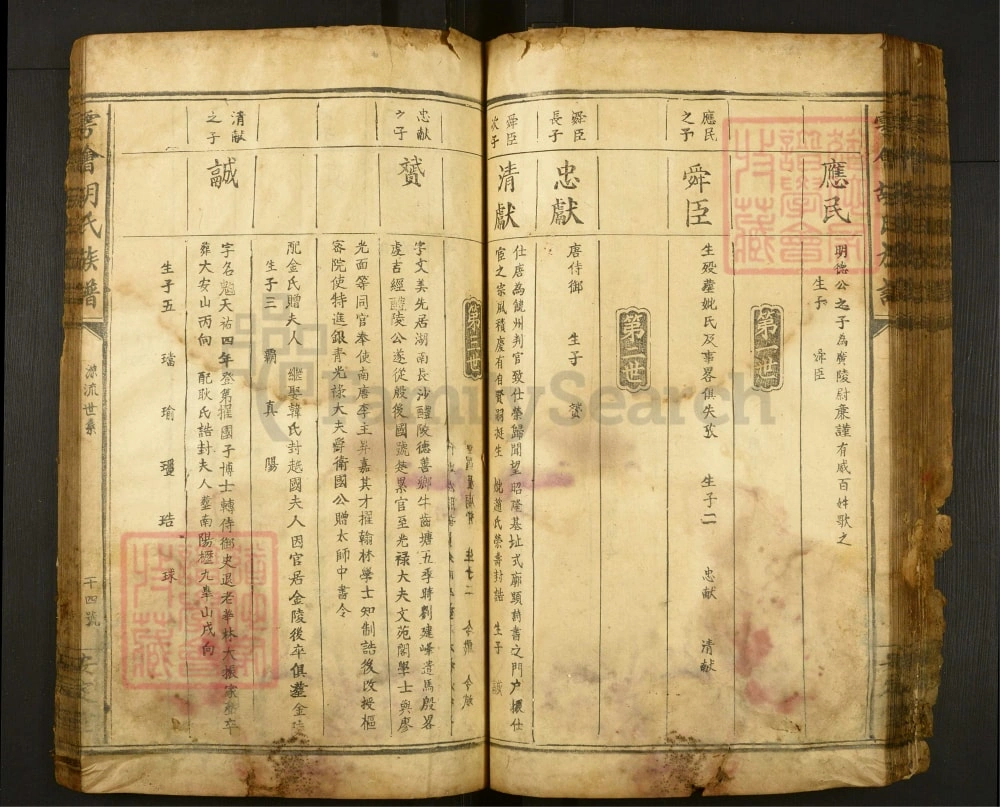 應民
明德公之子為廣陵尉廉謹有威百姓歌之
生子 舜臣
第一世
應民之子
舜臣
生歿葬妣氏及事畧俱失攷 生子二 忠獻 清獻
第二世
舜臣長子
忠獻
唐侍御 生子 贇
舜臣次子
清獻
仕唐為饒州判官致仕榮歸聞望昭隆基址式廓顯詩書之門户擴仕
宦之宗風積慶有自賢嗣挺生 妣蕭氏榮壽封誥 生子 誠
第三世
忠獻之子
贇
字文美先居湖南長沙醴陵德善鄉牛齒塘五季時劉建峰遣馬殷畧
虔吉經醴陵公遂從殷後國號楚累官至光禄大夫文苑閣學士與廖
光面等同官奉使南唐李主昇嘉其才擢翰林學士知制誥後改授樞
密院使特進銀青光禄大夫爵衛國公贈太師中書令
配金氏贈夫人 繼娶韓氏封越國夫人因官居金陵後卒俱葬金陵
生子三 霸 真 陽
清献之子
誠
字名魁天祐四年登第擢國子博士轉侍御史退老挙林大振家聲卒
葬大安山丙向 配耿氏誥封夫人葬南陽壢九臯山戌向
生子五 璿 瑜 瑾 珤 球
雲
胡氏族譜
源流世系
千四號
FamilySearch